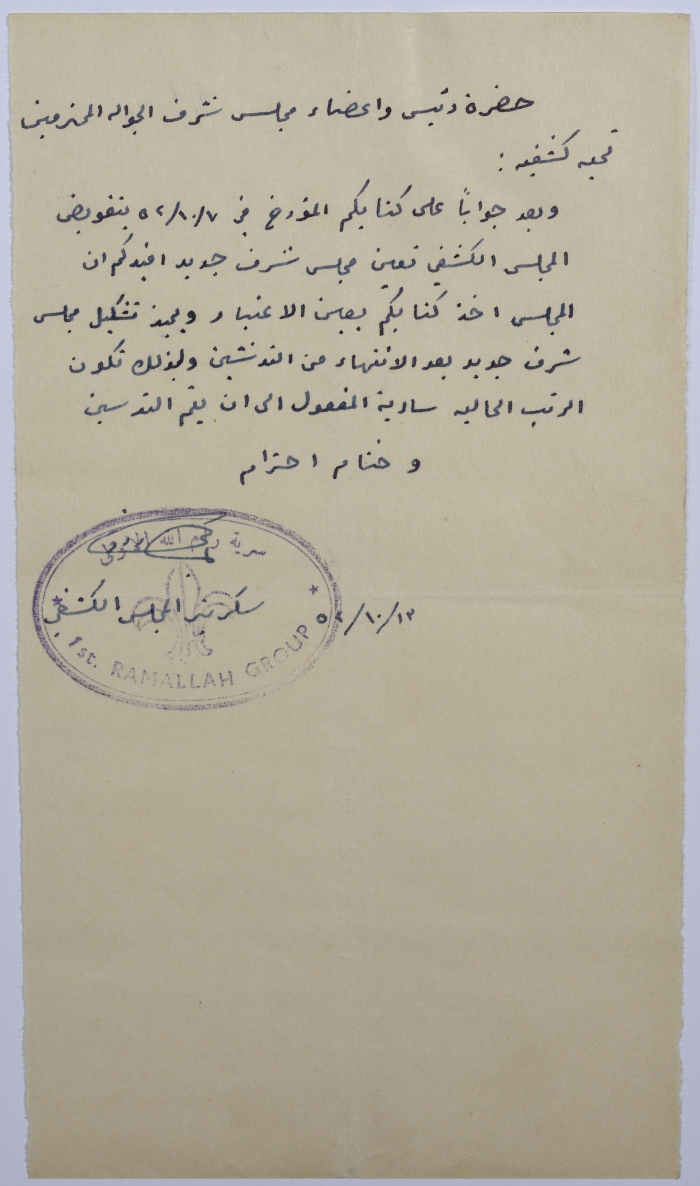 حضرة رئيس واعضاء مجلس شرف الجواله المحترمين
تحيه كشفيه :
وبعد جواباً على كتابكم المؤرخ في ٥٢/١٠/٧ بتفويض
المجلس الكشفي تعين مجلس شرف جديد افيدكم ان
المجلس اخذ كتابكم بعين الاعتبار ويحبذ تشكيل مجلس
شرف جديد بعد الانتهاء من التدشين ولذلك تكون
الرتب الحاليه سارية المفعول الى ان يتم التدسين
و ختام احترام
سرية رام الله الاولى
سكرتير المجلس الكشفي
٥٢/١٠/١٣
1st. RAMALLAH GROUP